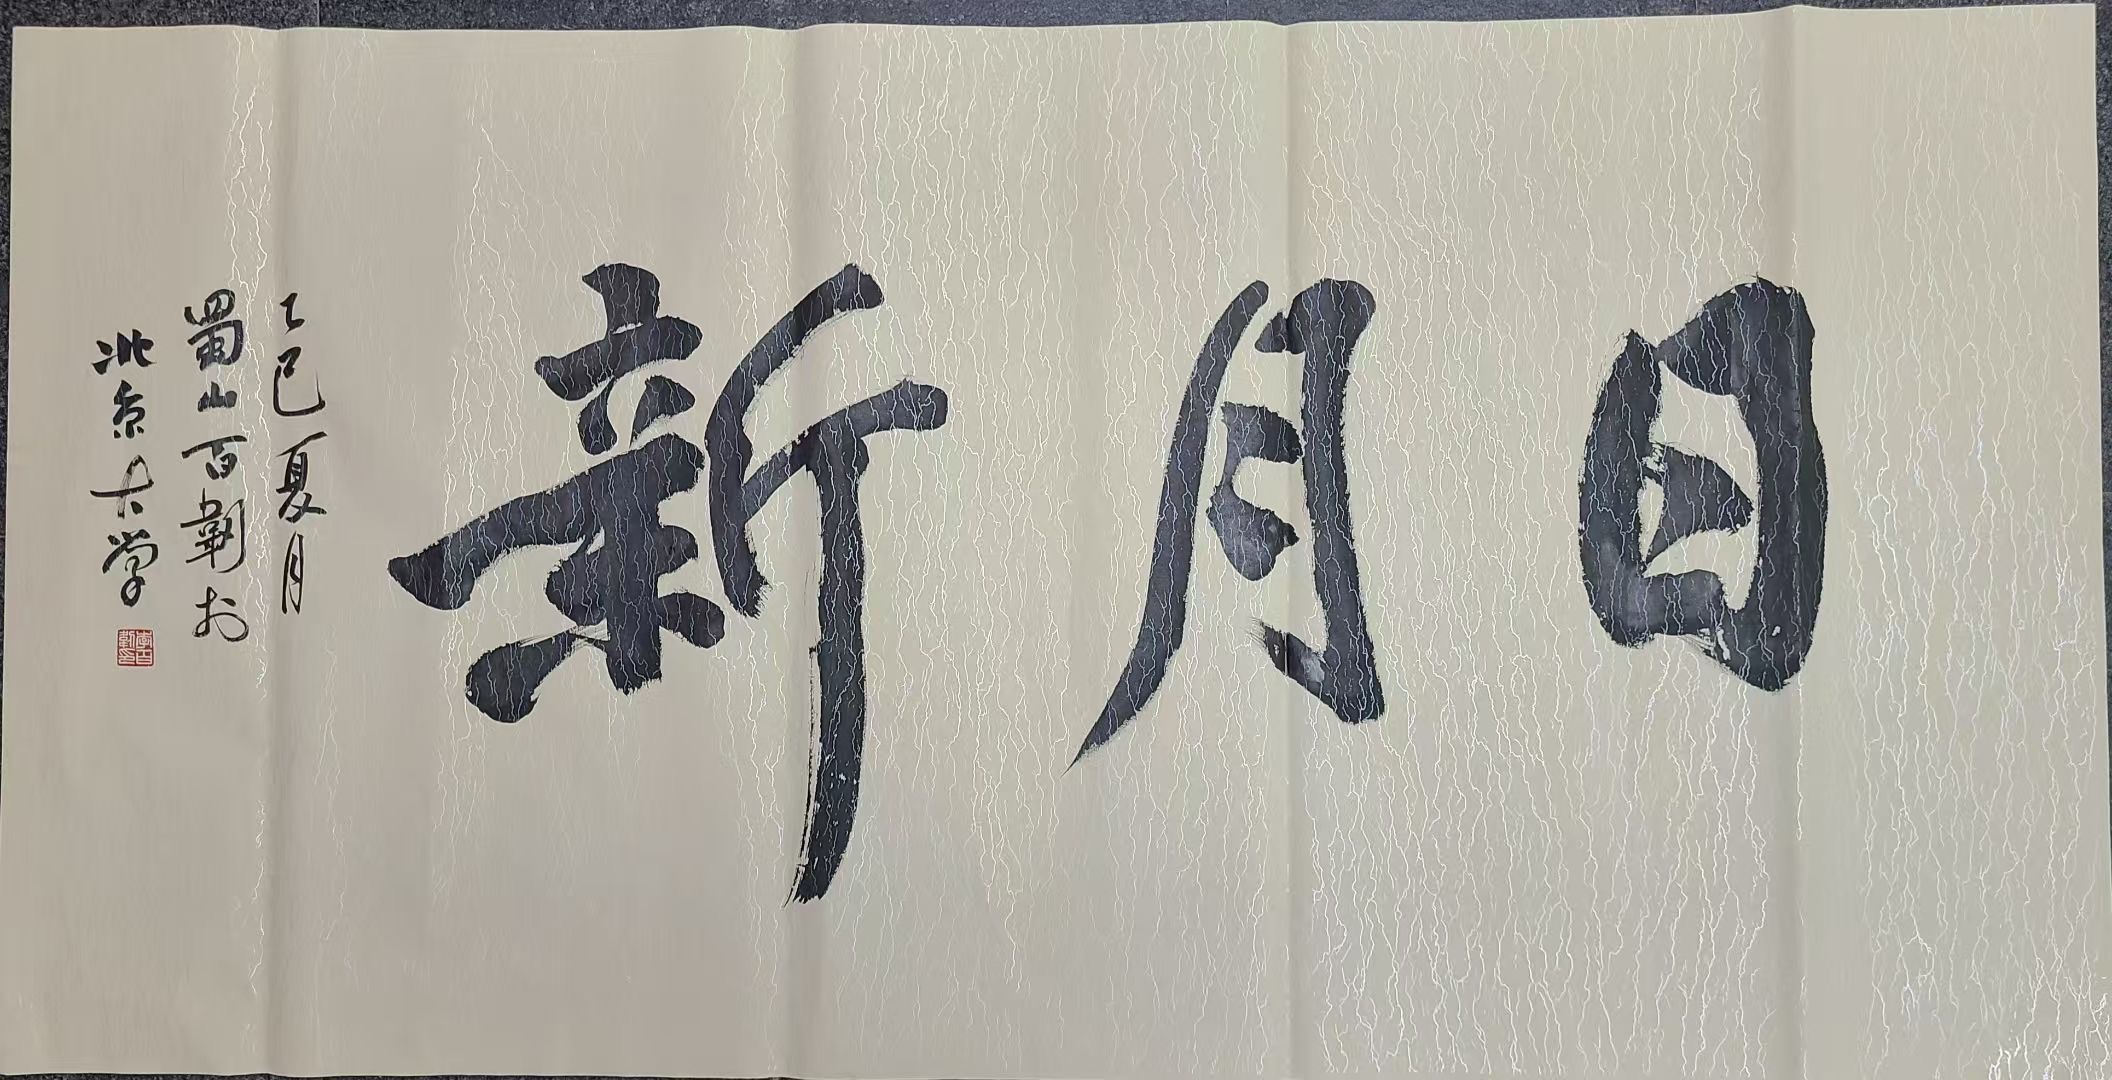 日月新
乙巳夏月
蜀山百韌於
北京大学